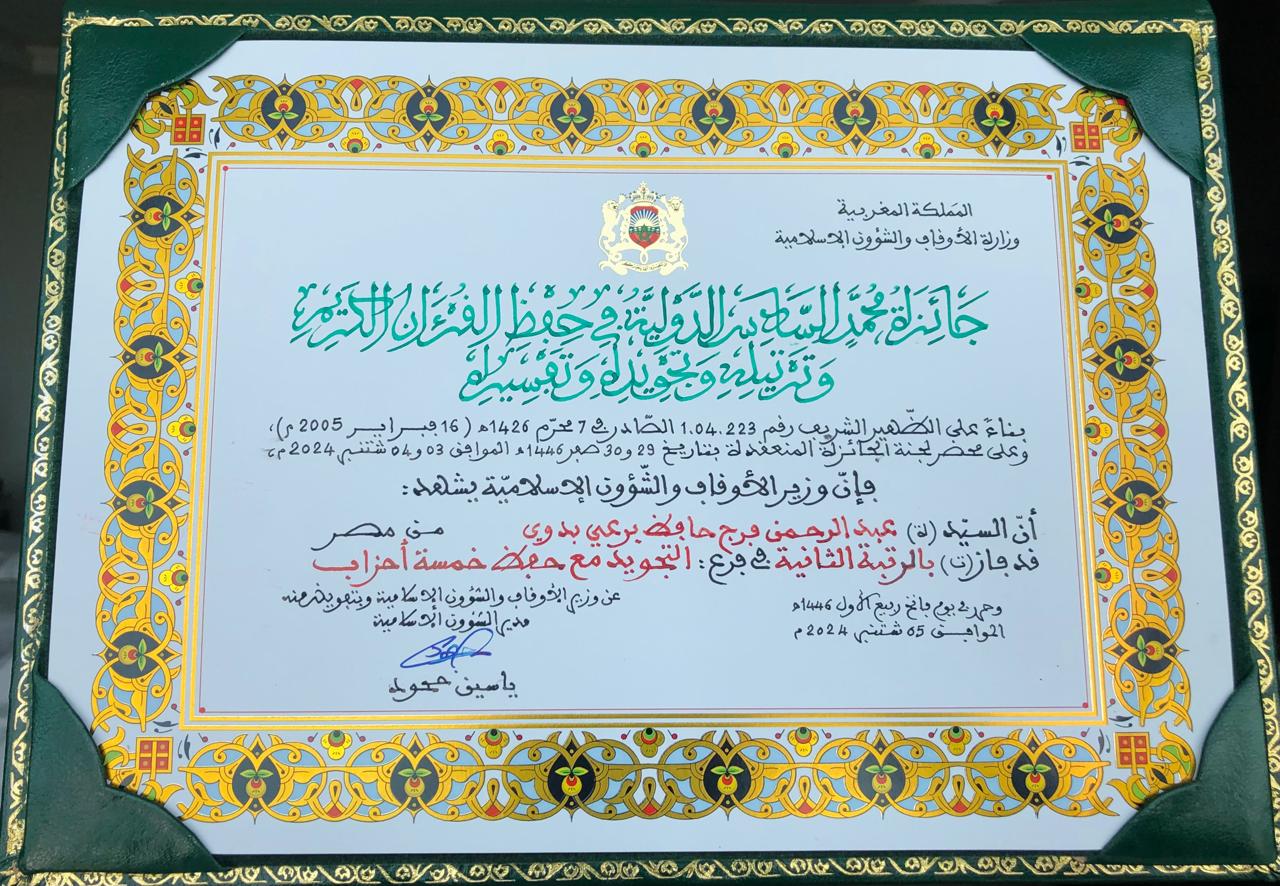 المملكة المغربية
وزارة الأوقاف والشؤون الإسلامية
جَائِزَةُ مُحَمَّدٍ السَّادِسِ الدَّوْلِيَّةُ فِي حِفْظِ الْقُرْءَانِ الْكَرِيمِ
وَتَرْتِيلِهِ وَتَجْوِيدِهِ وَتَفْسِيرِهِ
بناءً على الظّهير الشريف رقم 1.04.223 الصّادر في 7 محرّم 1426هـ (16 فبراير 2005 م)،
وعلى محضر لجنة الجائزة المنعقدة بتاريخ 29 و30 صفر 1446هـ الموافق 03 و04 شتنبر 2024 م،
فإنّ وزير الأوقاف والشّؤون الإسلاميّة يشهد:
أنّ السيّد (ة) عبد الرحمن فرج حافظ برعي بدوي من مصر
قد فاز (ت) بالرتبة الثانية في فرع: التجويد مع حفظ خمسة أحزاب
وحرر في يوم فاتح ربيع الأول 1446هـ
الموافق 05 شتنبر 2024 م
عن وزير الأوقاف والشؤون الإسلامية وبتفويض منه
مدير الشؤون الإسلامية
ياسين حمود